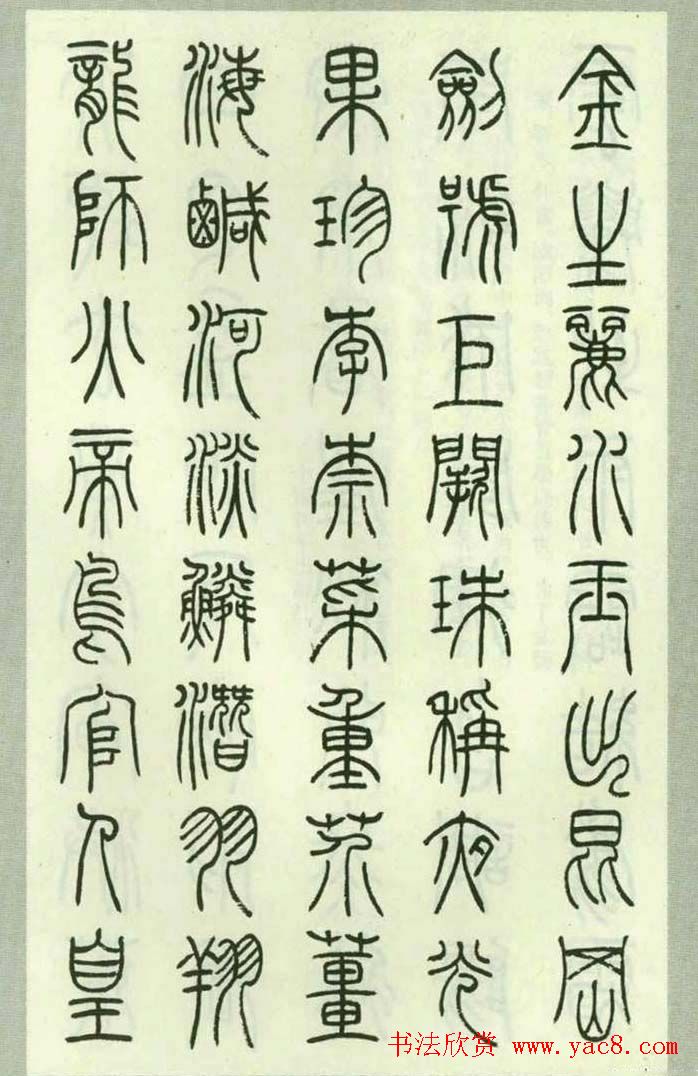 金生麗水玉出崑岡
劍號巨闕珠稱夜光
果珍李柰菜重芥薑
海鹹河淡鱗潛羽翔
龍師火帝鳥官人皇
书法欣赏 www.yac8.com